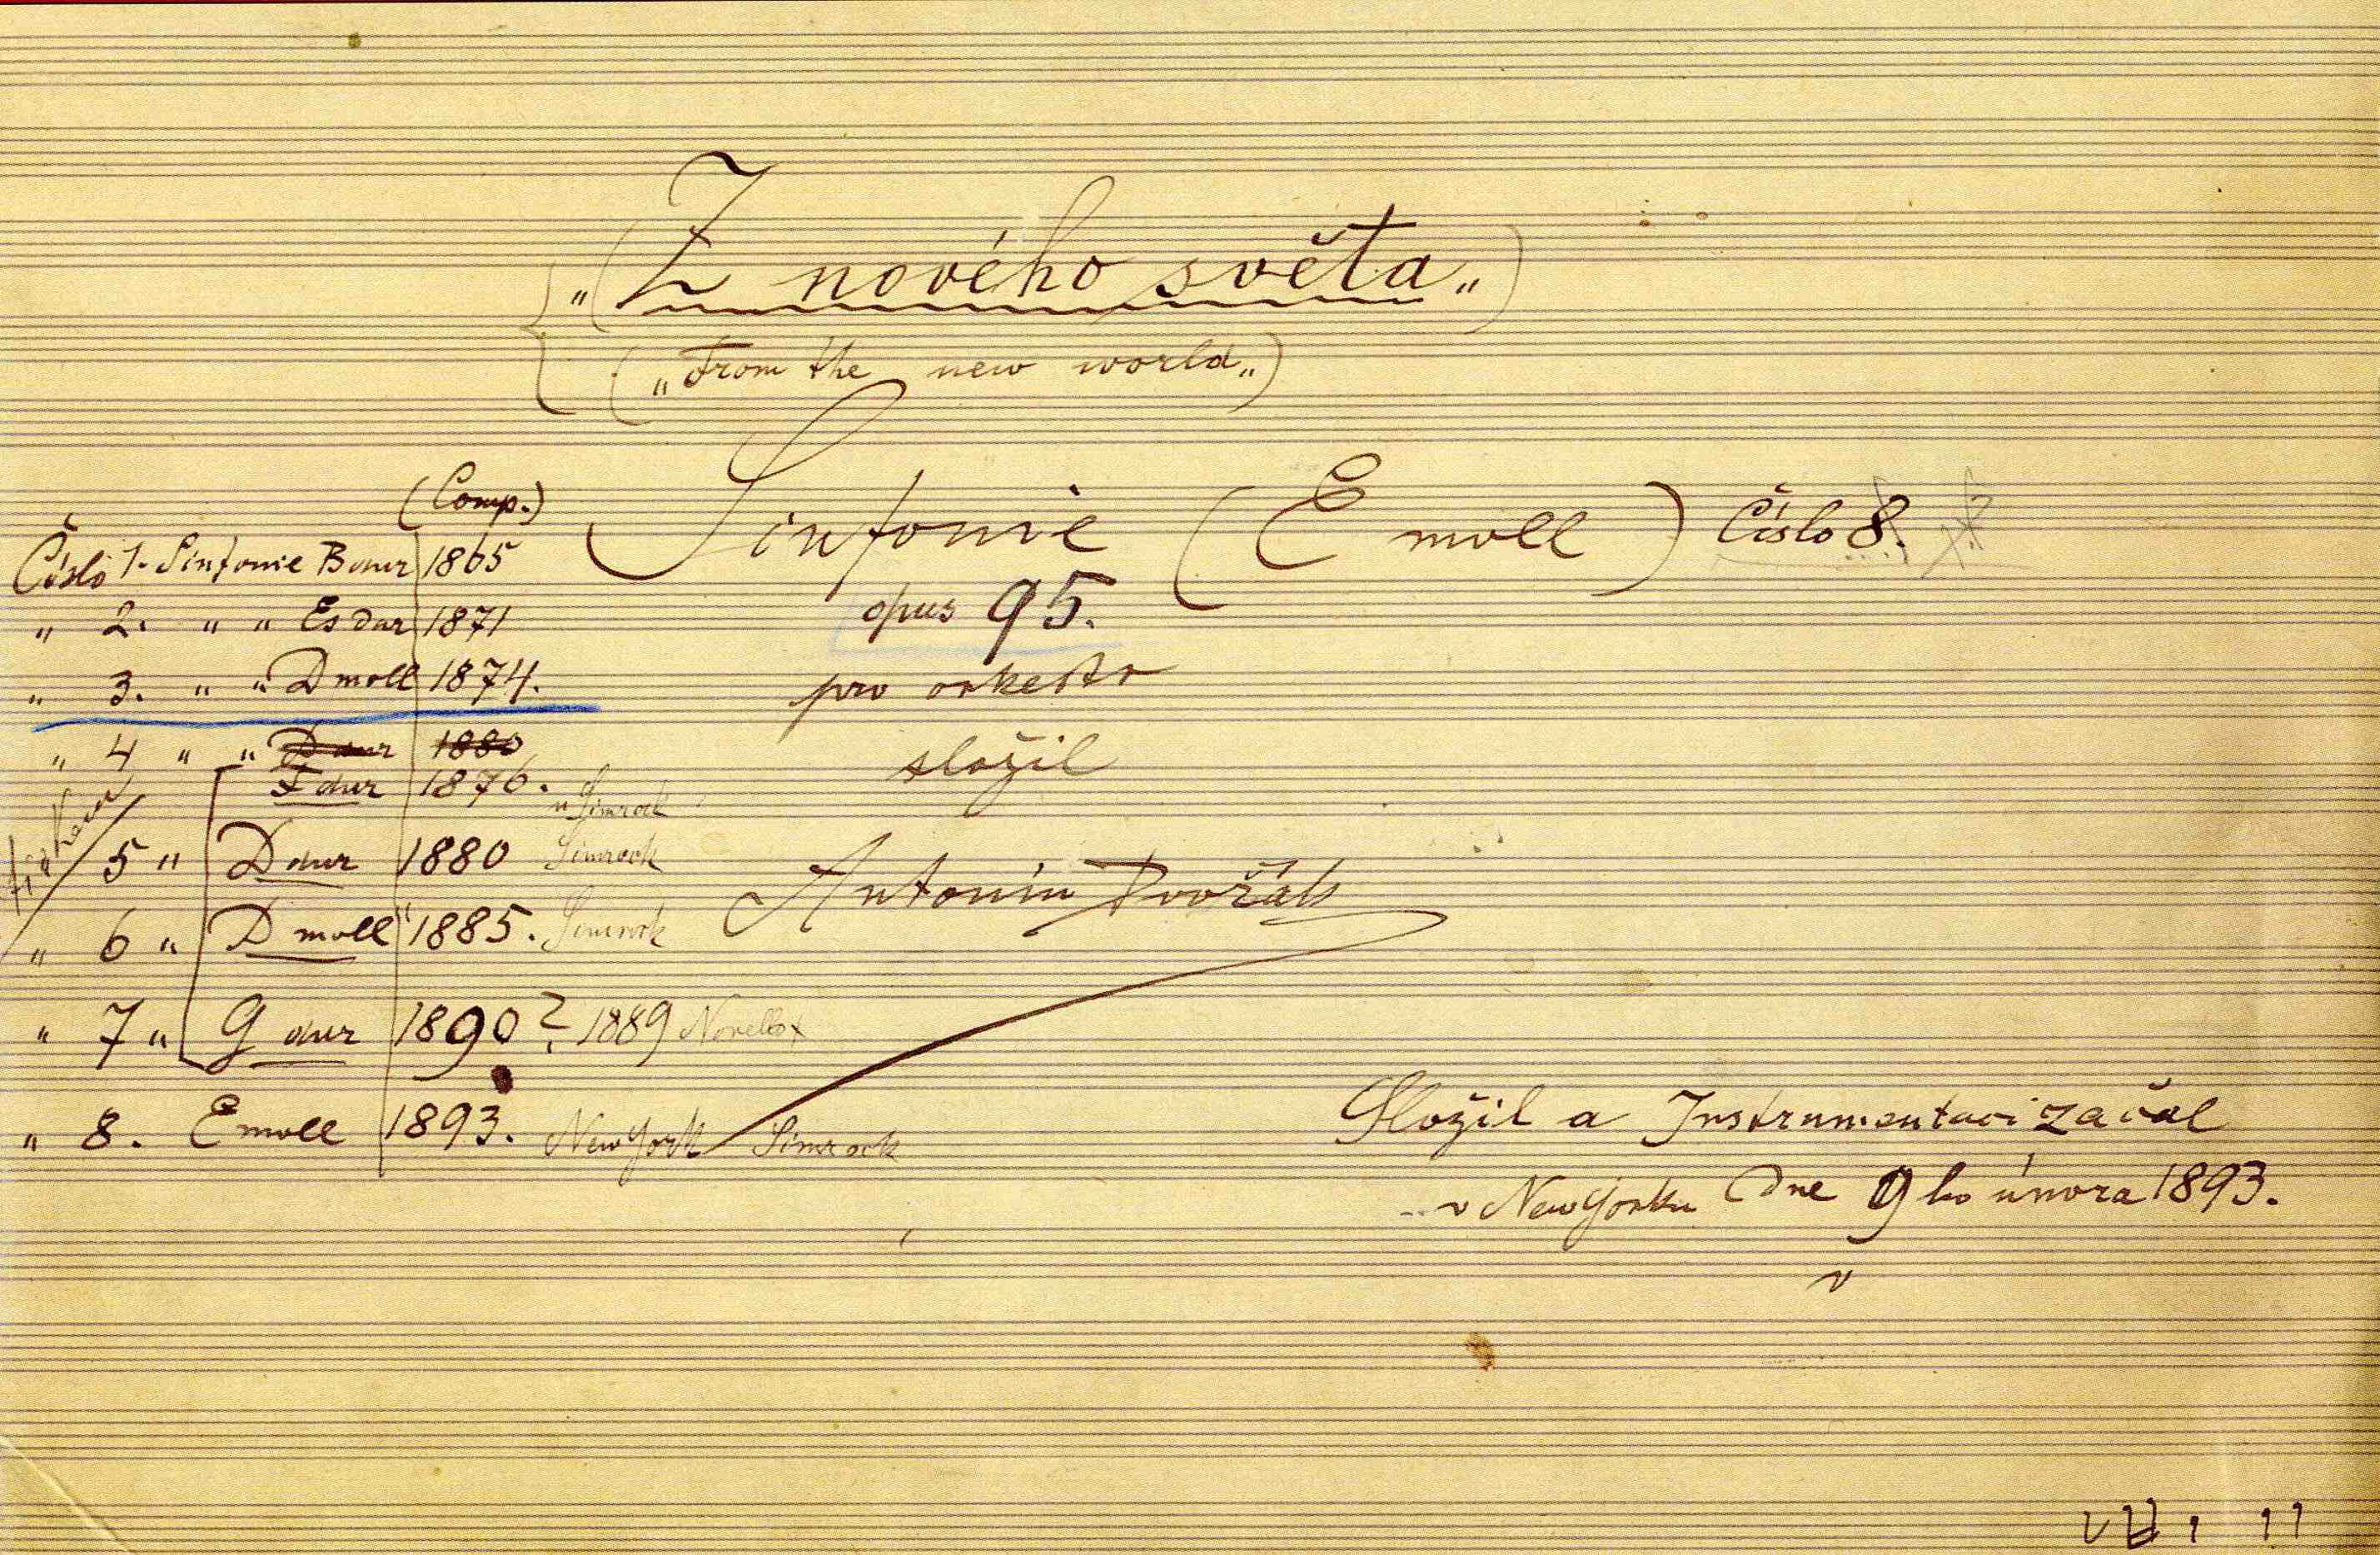 „Z nového světa„
(„From the new world„)
Sinfonie (E moll) Číslo 8.
opus 95.
pro orkestr
složil
Antonín Dvořák
(Comp.)
Číslo 1. Sinfonie B dur 1865
" 2. " " Es dur 1871
" 3. " " D moll 1874.
" 4 " " D dur 1880
F dur 1876. u Simrock
5 " D dur 1880 Simrock
" 6 " D moll " 1885. Simrock
" 7 " G dur 1890? 1889 Novello
" 8. E moll 1893. New York Simrock
Složil a Instrumentaci začal
v New Yorku Dne 9ho února 1893.